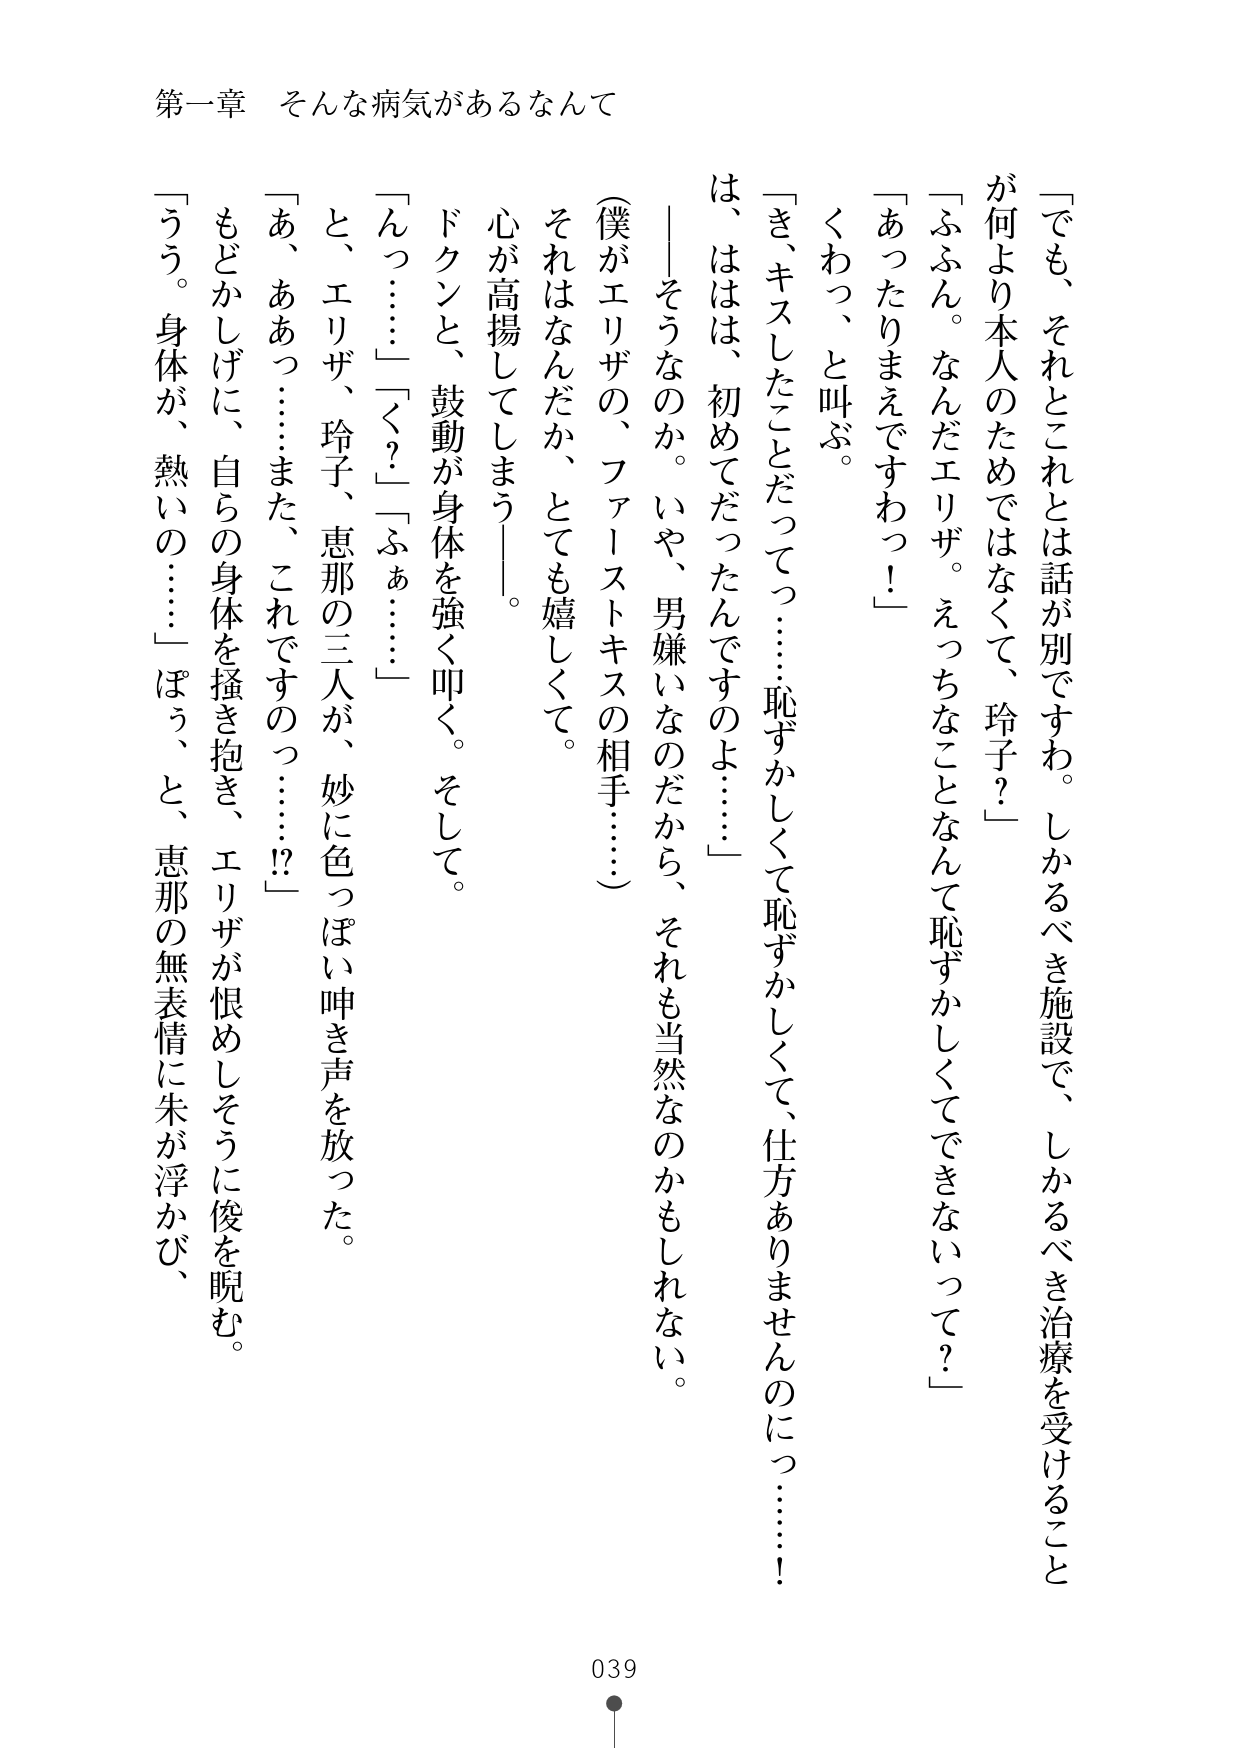 第一章　そんな病気があるなんて
「でも、それとこれとは話が別ですわ。しかるべき施設で、しかるべき治療を受けること
が何より本人のためではなくて、玲子？」
「ふふん。なんだエリザ。えっちなことなんて恥ずかしくてできないって？」
「あったりまえですわっ！」
　くわっ、と叫ぶ。
「き、キスしたことだってっ……恥ずかしくて恥ずかしくて、仕方ありませんのにっ……！
は、ははは、初めてだったんですのよ……」
　――そうなのか。いや、男嫌いなのだから、それも当然なのかもしれない。
（僕がエリザの、ファーストキスの相手……）
　それはなんだか、とても嬉しくて。
　心が高揚してしまう――。
　ドクンと、鼓動が身体を強く叩く。そして。
「んっ……」「く？」「ふぁ……」
　と、エリザ、玲子、恵那の三人が、妙に色っぽい呻き声を放った。
「あ、ああっ……また、これですのっ……!?」
　もどかしげに、自らの身体を掻き抱き、エリザが恨めしそうに俊を睨む。
「うう。身体が、熱いの……」ぽぅ、と、恵那の無表情に朱が浮かび、
039